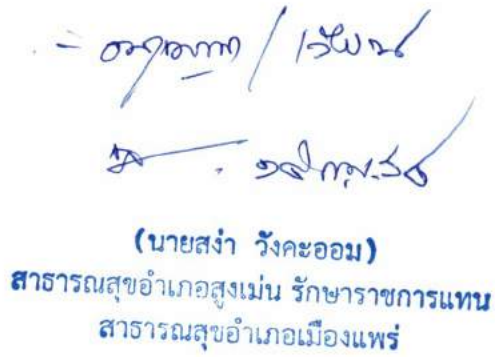 - อนุญาต / เวียน
(นายสง่า วังคะออม)
สาธารณสุขอำเภอสูงเม่น รักษาราชการแทน
สาธารณสุขอำเภอเมืองแพร่